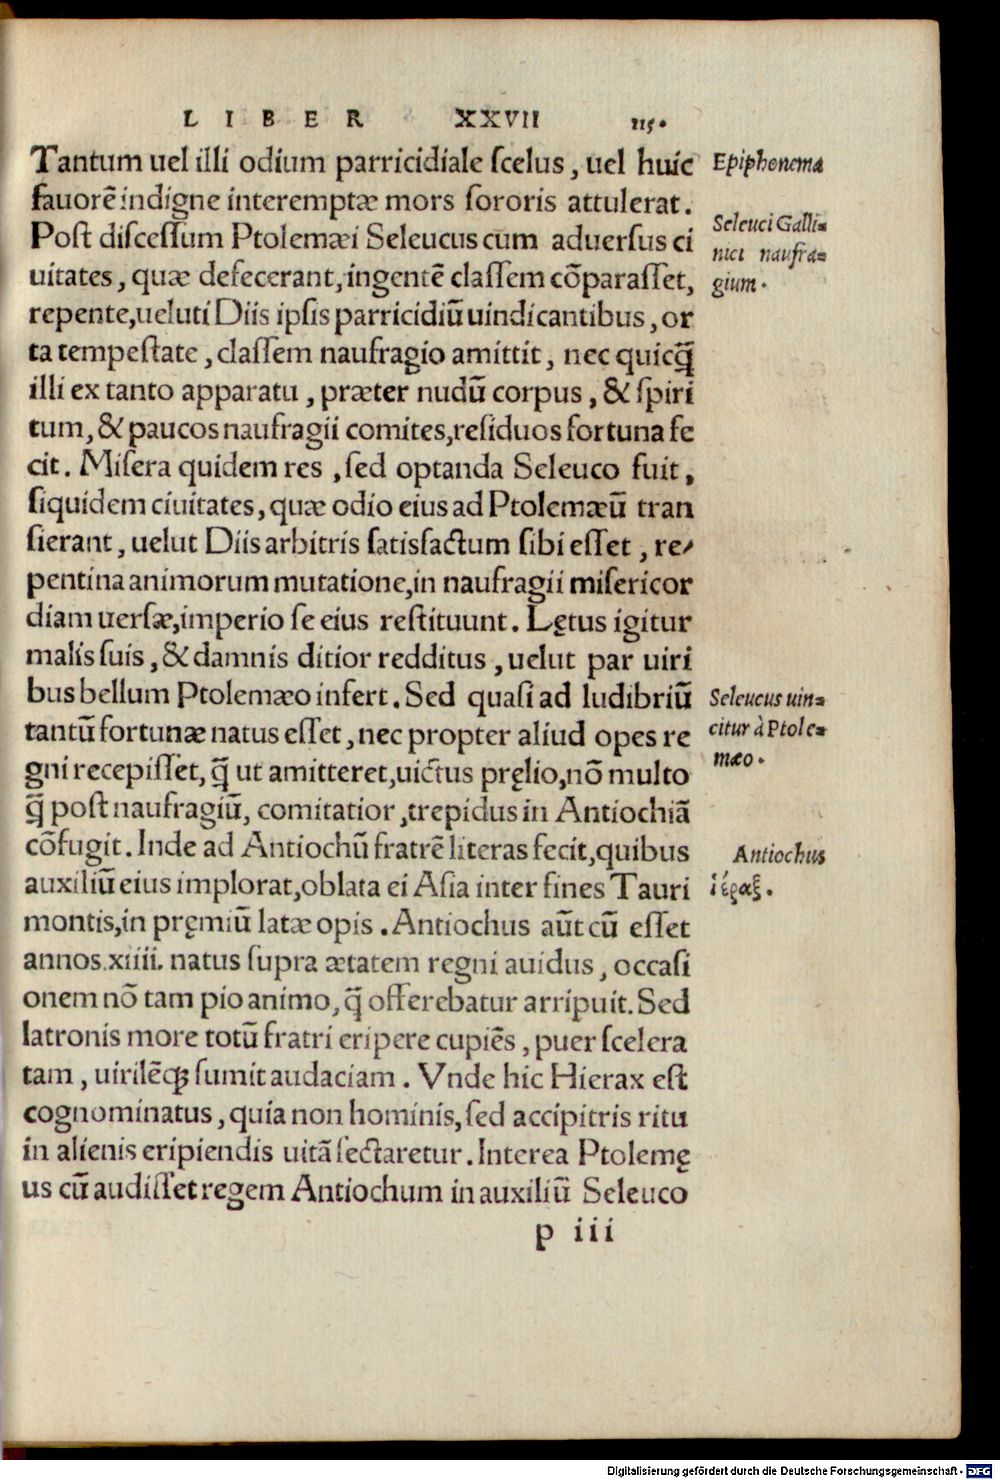 LIBER XXVII 115.
Tantum uel illi odium parricidiale scelus, uel huic
fauorē indigne interemptæ mors sororis attulerat.
Post discessum Ptolemæi Seleucus cum aduersus ci
uitates, quæ defecerant, ingentē classem cōparasset,
repente, ueluti Diis ipsis parricidiū uindicantibus, or
ta tempestate, classem naufragio amittit, nec quicq̄
illi ex tanto apparatu, præter nudū corpus, & spiri
tum, & paucos naufragii comites, residuos fortuna fe
cit. Misera quidem res, sed optanda Seleuco fuit,
siquidem ciuitates, quæ odio eius ad Ptolemæū tran
sierant, uelut Diis arbitris satisfactum sibi esset, re-
pentina animorum mutatione, in naufragii misericor
diam uersæ, imperio se eius restituunt. Lętus igitur
malis suis, & damnis ditior redditus, uelut par uiri
bus bellum Ptolemæo infert. Sed quasi ad ludibriū
tantū fortunæ natus esset, nec propter aliud opes re
gni recepisset, q̄ ut amitteret, uictus pręlio, nō multo
q̄ post naufragiū, comitatior, trepidus in Antiochiā
cōfugit. Inde ad Antiochū fratrē literas fecit, quibus
auxiliū eius implorat, oblata ei Asia inter fines Tauri
montis, in pręmiū latæ opis. Antiochus aūt cū esset
annos.xiiii. natus supra ætatem regni auidus, occasi
onem nō tam pio animo, q̄ offerebatur arripuit. Sed
latronis more totū fratri eripere cupiēs, puer scelera
tam, uirilēq; sumit audaciam. Vnde hic Hierax est
cognominatus, quia non hominis, sed accipitris ritu
in alienis eripiendis uitā sectaretur. Interea Ptolemę
us cū audisset regem Antiochum in auxiliū Seleuco
p iii
Epiphonema
Seleuci Galli-
nici naufra-
gium.
Seleucus uin-
citur à Ptole-
mæo.
Antiochus
ἱέραξ.
Digitalisierung gefördert durch die Deutsche Forschungsgemeinschaft - DFG